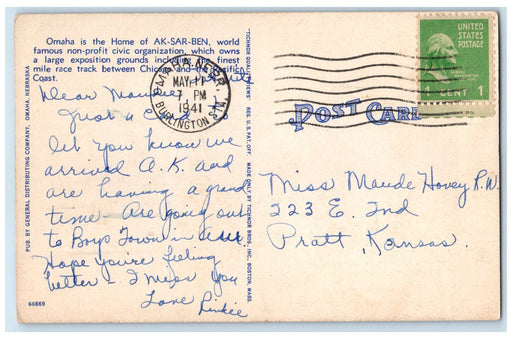 Omaha is the Home of AK-SAR-BEN, world
famous non-profit civic organization, which owns
a large exposition grounds including the finest
mile race track between Chicago and the Pacific
Coast.
Dear Maudie
Just a
let you know we
arrived O.K. and
are having a grand
time. Are going out
to Boys Town in
Hope you're feeling
better - I miss you
Love
66669
PUB. BY GENERAL DISTRIBUTING COMPANY, OMAHA, NEBRASKA
"TICHNOR QUALITY VIEWS," REG. U. S. PAT. OFF. MADE ONLY BY TICHNOR BROS., INC., BOSTON, MASS.
MAY
7 PM
1941
BURLINGTON
POST CARD
UNITED
STATES
POSTAGE
1 CENT 1
Miss Maude Hovey R.N.
223 E. 2nd
Pratt, Kansas.